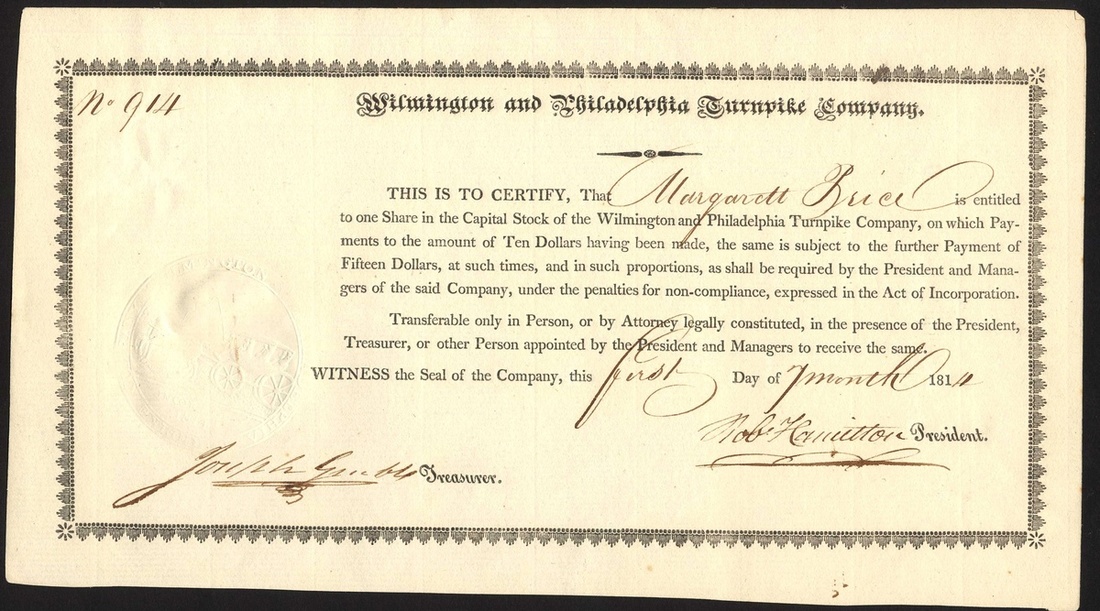 No 914
Wilmington and Philadelphia Turnpike Company.
THIS IS TO CERTIFY, That Margarett Brice is entitled
to one Share in the Capital Stock of the Wilmington and Philadelphia Turnpike Company, on which Pay-
ments to the amount of Ten Dollars having been made, the same is subject to the further Payment of
Fifteen Dollars, at such times, and in such proportions, as shall be required by the President and Mana-
gers of the said Company, under the penalties for non-compliance, expressed in the Act of Incorporation.
Transferable only in Person, or by Attorney legally constituted, in the presence of the President,
Treasurer, or other Person appointed by the President and Managers to receive the same.
WITNESS the Seal of the Company, this first Day of 7 month 1814
Robt Hamilton President.
Joseph Grubb Treasurer.